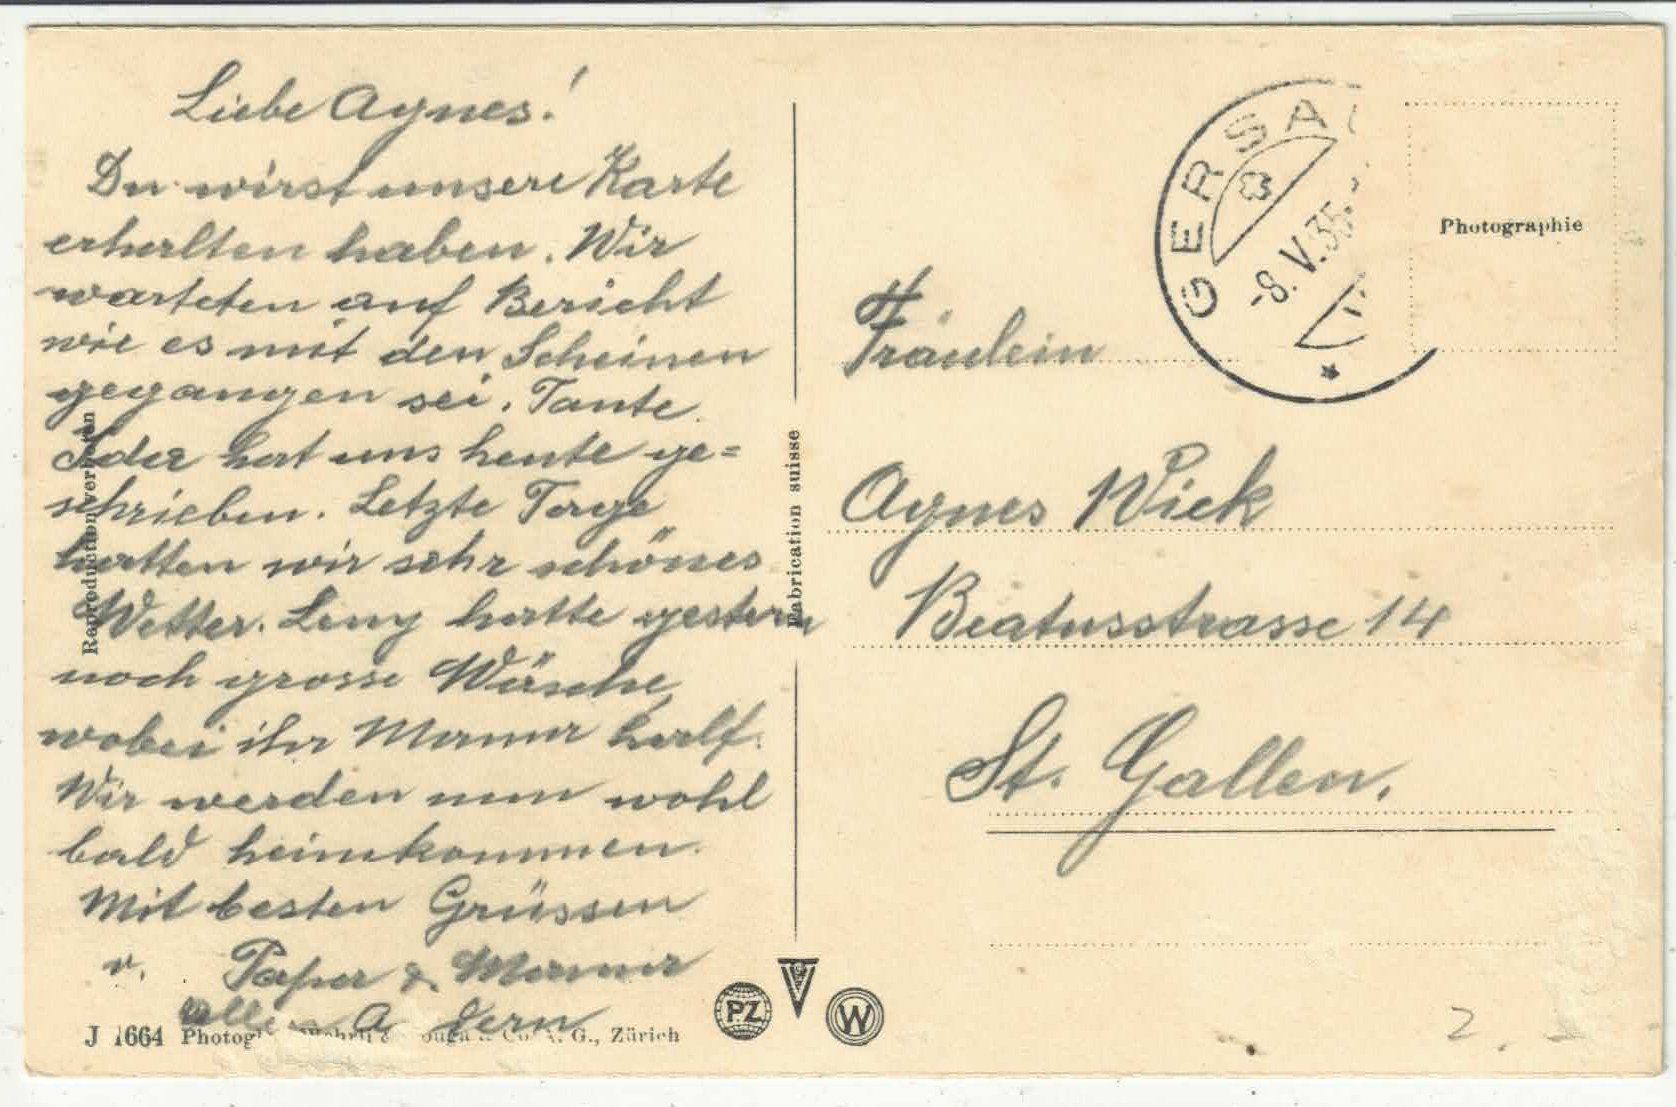 Liebe Agnes!
Du wirst unsere Karte
erhalten haben. Wir
warteten auf Bericht
wie es mit den Scheinen
gegangen sei. Tante
Ida hat uns heute ge=
schrieben. Letzte Tage
hatten wir sehr schönes
Wetter. Leny hatte gestern
noch grosse Wäsche,
wobei ihr Mama half.
Wir werden nun wohl
bald heimkommen.
Mit besten Grüssen
v. Papa & Mama
J 1664 Photogr Co A. G., Zürich
Reproduction verboten
Fabrication suisse
PZ
W
GERSA
-8.V.35.
Photographie
Fräulein
Agnes Wick
Beatusstrasse 14
St. Gallen.
2.